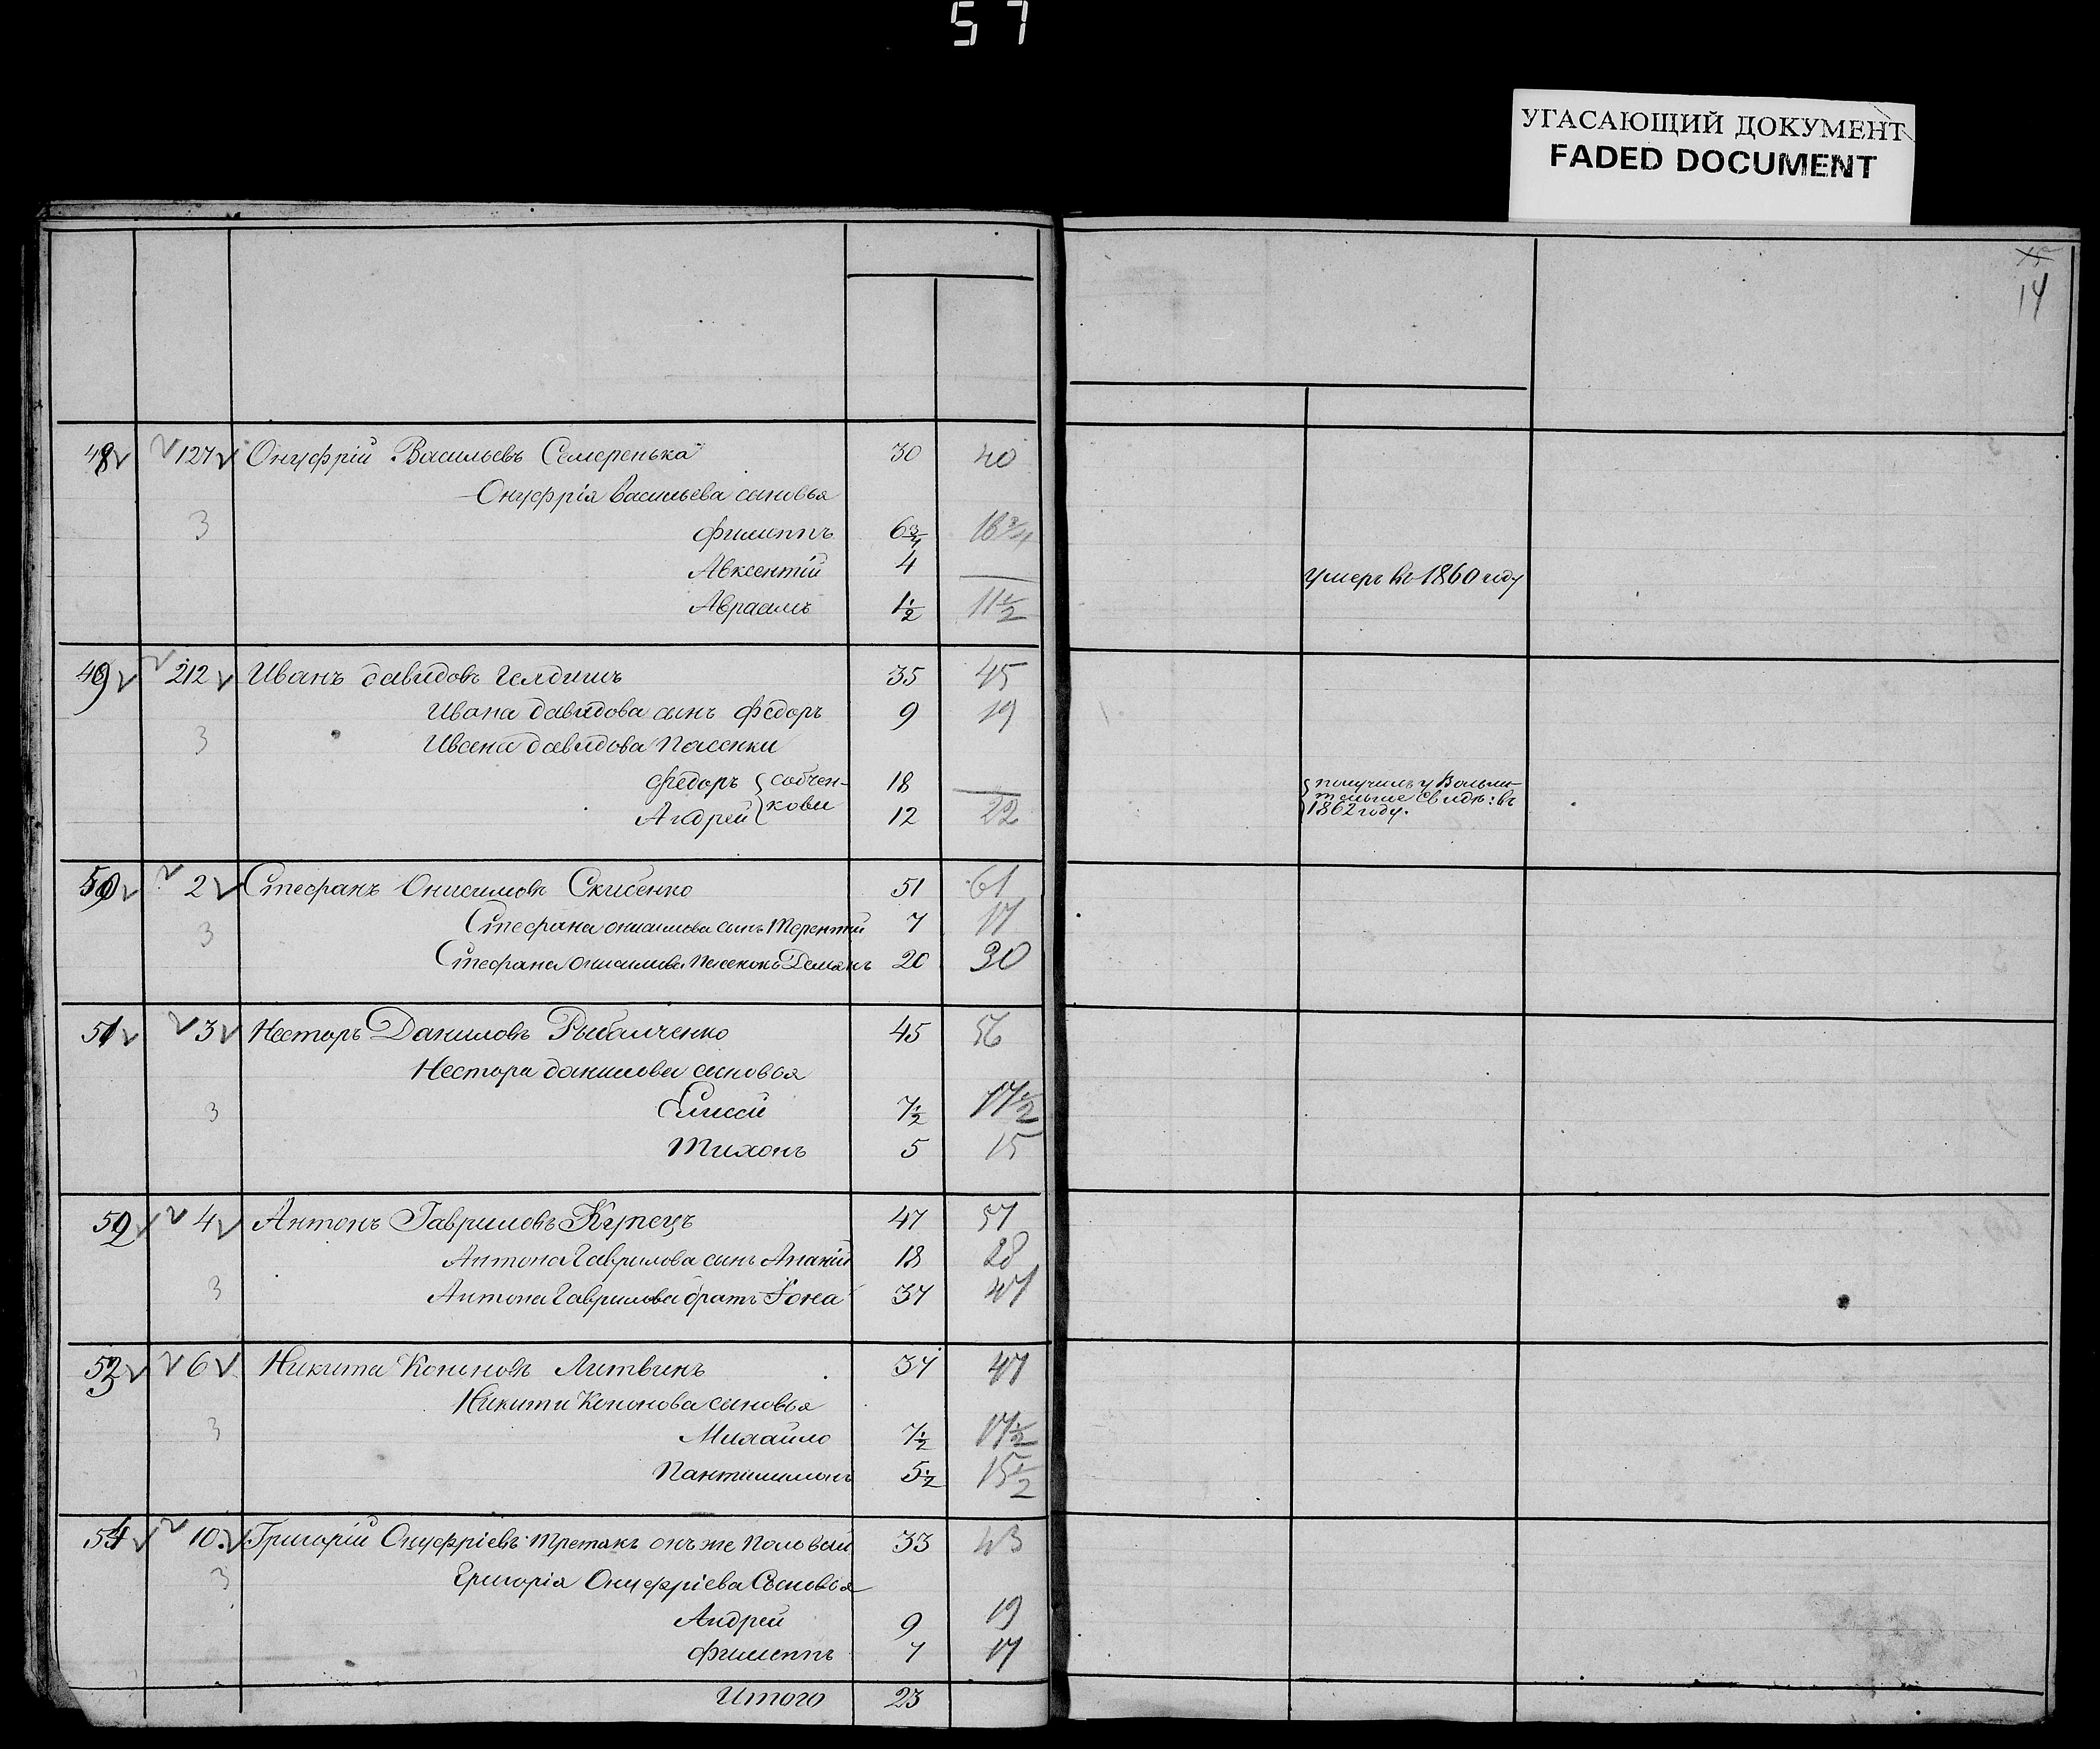 57
УГАСАЮЩИЙ ДОКУМЕНТ
FADED DOCUMENT
14
48 127 Онуфрій Васильевъ Семеренька 30 40
Онуфрія Васильева сыновья
3 Филиппъ 6¾ 16¾
Авксентій 4 — умеръ въ 1860 году
Авраамъ 1½ 11½
49 212 Иванъ Давидовъ Гелдишъ 35 45
Ивана Давидова сынъ Федоръ 9 19
3 Ивана Давидова пасенки
Федоръ { собчен- 18 — { получилъ увольни-
Андрей { кови 12 22 тельное свидѣ: въ
1862 году.
50 2 Стефанъ Онисимовъ Скибенко 51 61
3 Стефана Онисимова сынъ Терентій 7 17
Стефана Онисимова пасенокъ Демянъ 20 30
51 3 Несторъ Даниловъ Рыбалченко 45 56
Нестора Данилова сыновья
3 Елисей 7½ 17½
Тихонъ 5 15
52 4 Антонъ Гавриловъ Купецъ 47 57
Антона Гаврилова сынъ Ананій 18 28
3 Антона Гаврилова братъ Іона 37 47
53 6 Никита Кононовъ Литвинъ 37 47
Никити Кононова сыновья
3 Михайло 7½ 17½
Пантилимонъ 5½ 15½
54 10 Григорій Онуфріевъ Третякъ онъ же Половый 33 43
3 Григорія Онуфріева Сыновья
Андрей 9 19
Филиппъ 7 17
Итого 23